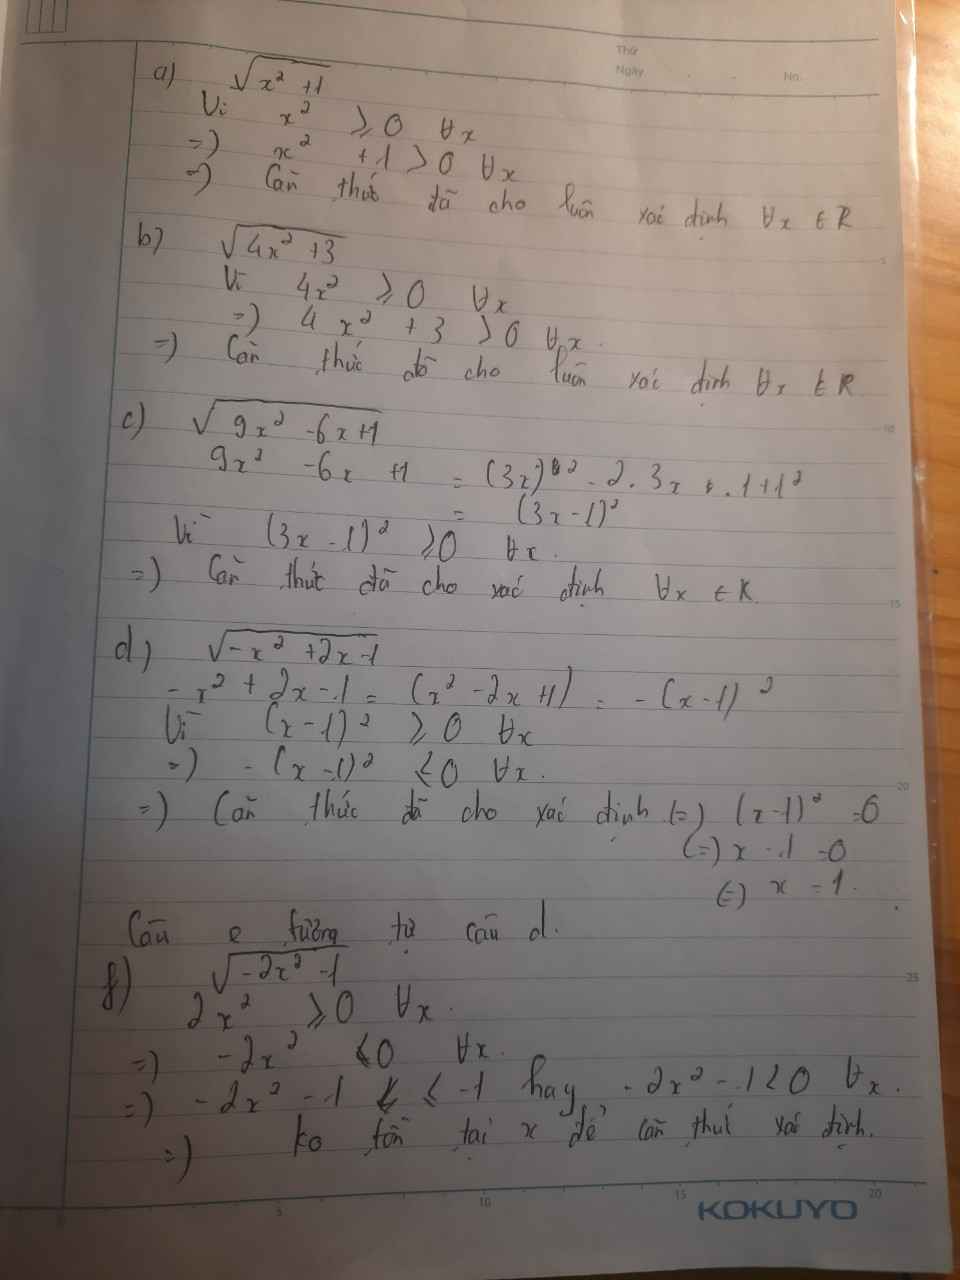 Thứ
Ngày
No.
a) √x² + 1
Vì x² ⩾ 0 ∀x
=) x² + 1 > 0 ∀x
=) Căn thức đã cho luôn xác định ∀x ∈ R
b) √4x² + 3
Vì 4x² ⩾ 0 ∀x
=) 4x² + 3 > 0 ∀x.
=) Căn thức đã cho luôn xác định ∀x ∈ R
c) √9x² - 6x + 1
9x² - 6x + 1 = (3x)² - 2. 3x . 1 + 1²
= (3x - 1)²
Vì (3x - 1)² ⩾ 0 ∀x.
=) Căn thức đã cho xác định ∀x ∈ R
d) √-x² + 2x - 1
-x² + 2x - 1 = (x² - 2x + 1) = -(x - 1)²
Vì (x - 1)² ⩾ 0 ∀x
=) -(x - 1)² ⩽ 0 ∀x.
=) Căn thức đã cho xác định (=) (x - 1)² = 0
(=) x - 1 = 0
(=) x = 1.
Câu e tương tự câu d.
f) √-2x² - 1
2x² ⩾ 0 ∀x.
=) -2x² ⩽ 0 ∀x.
=) -2x² - 1 ⩽ -1 hay -2x² - 1 < 0 ∀x.
=) ko tồn tại x để căn thức xác định.
5
10
15
20
25
5
10
15
20
KOKUYO